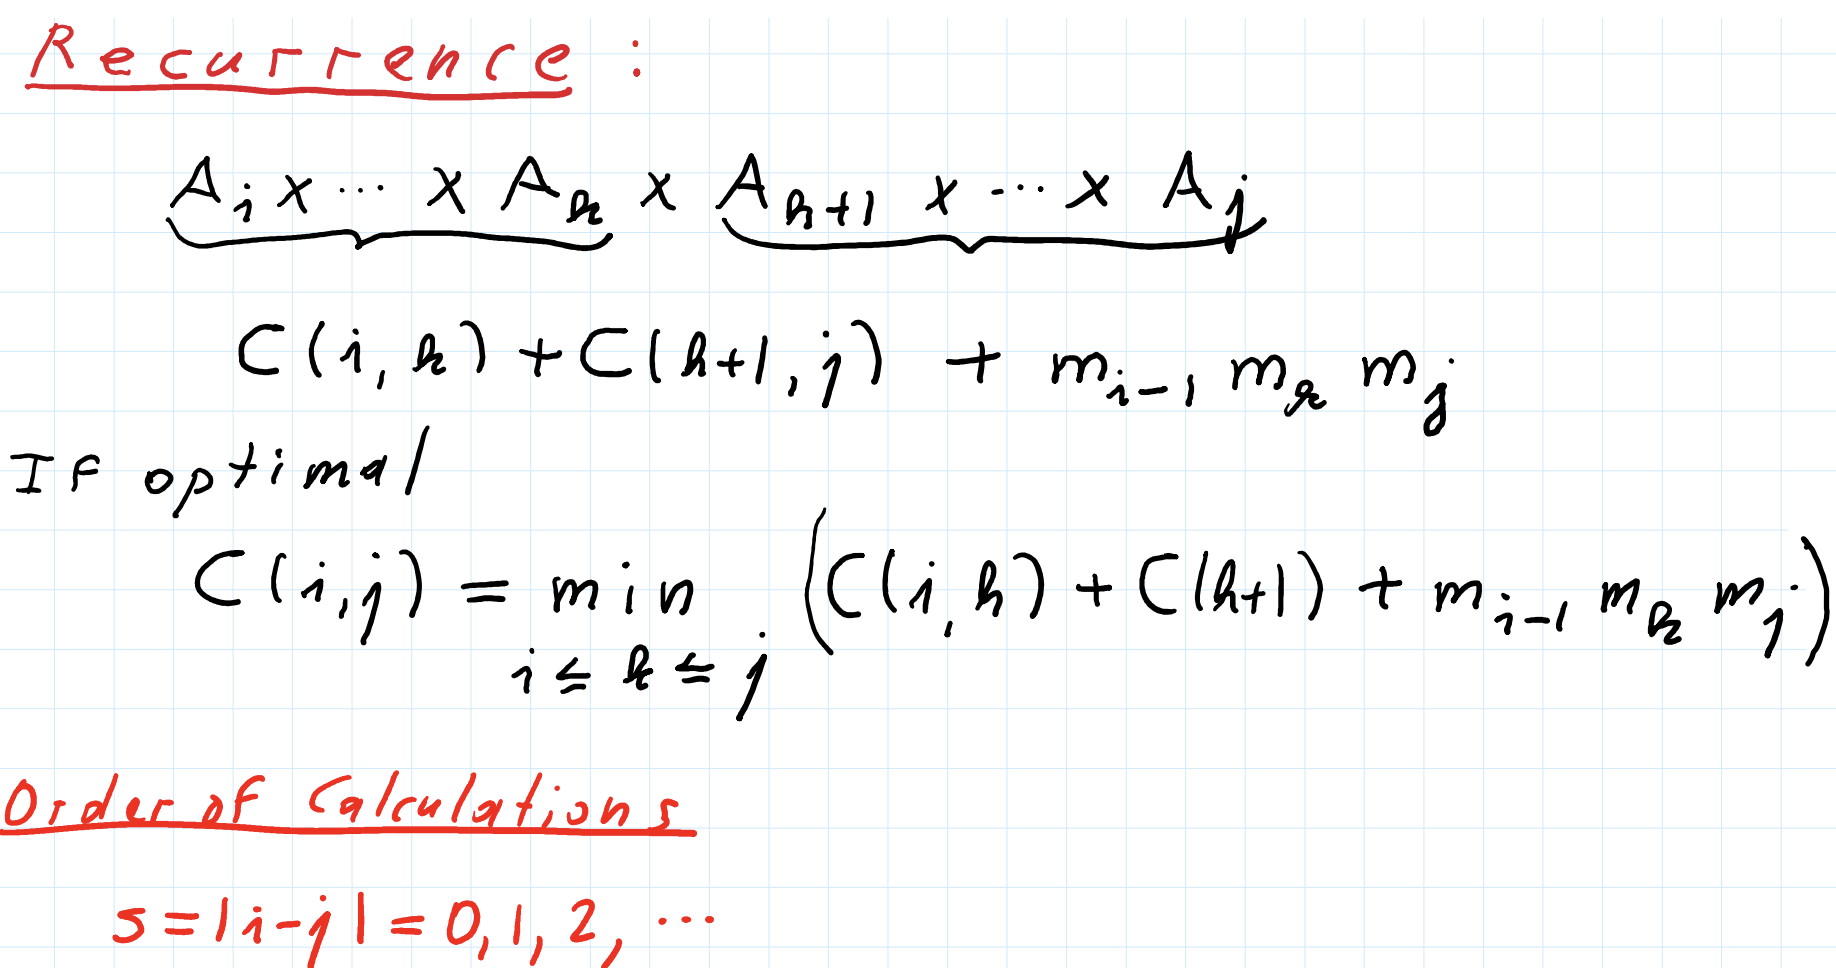 Recurrence :
A_i x ... x A_k x A_{k+1} x ... x A_j
C(i,k) + C(k+1,j) + m_{i-1} m_k m_j
If optimal
C(i,j) = min (C(i,k) + C(k+1) + m_{i-1} m_k m_j)
i ≤ k ≤ j
Order of Calculations
s = |i-j| = 0, 1, 2, ...